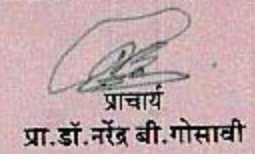 प्राचार्य
प्रा.डॉ.नरेंद्र बी.गोसावी